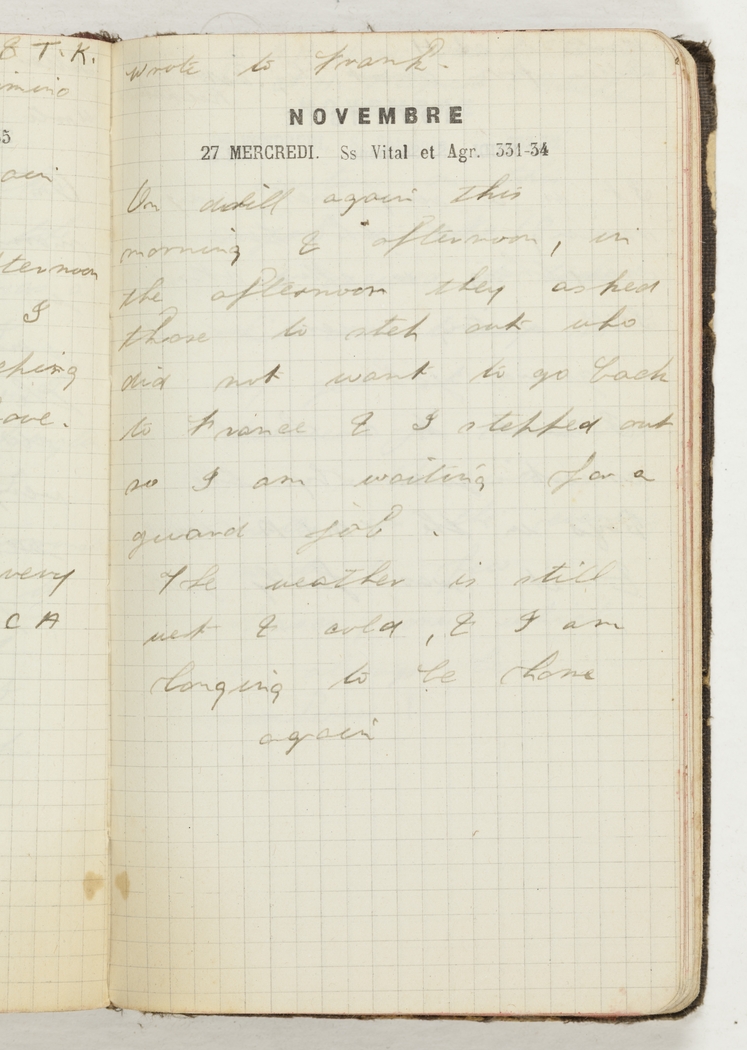 & T.K.
5
ternoon
I
ove.
very
C A
wrote to Frank.
NOVEMBRE
27 MERCREDI. Ss Vital et Agr. 331-34
On drill again this
morning & afternoon, in
the afternoon they asked
those to step out who
did not want to go back
to France & I stepped out
so I am waiting for a
guard job.
The weather is still
wet & cold, & I am
longing to be home
again